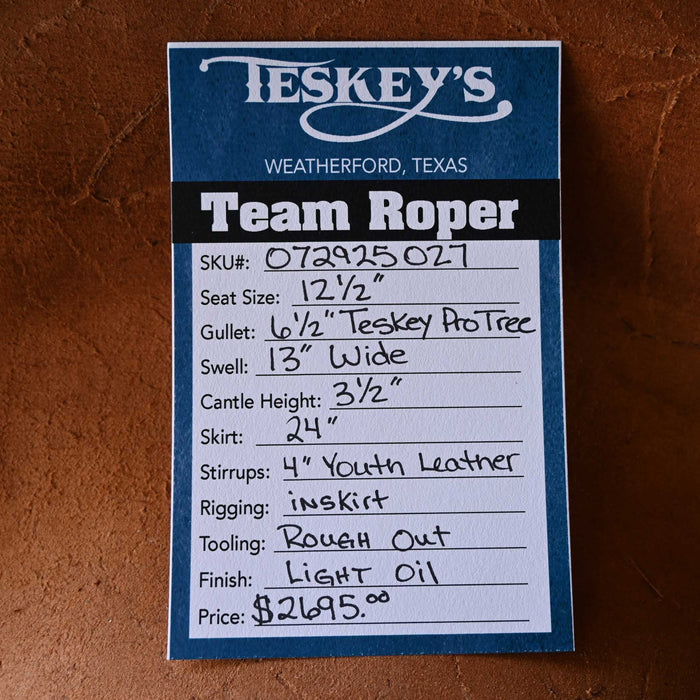 TESKEY'S
WEATHERFORD, TEXAS
Team Roper
SKU#: 072925027
Seat Size: 12 1/2"
Gullet: 6 1/2" Teskey ProTree
Swell: 13" Wide
Cantle Height: 3 1/2"
Skirt: 24"
Stirrups: 4" Youth Leather
Rigging: inskirt
Tooling: Rough Out
Finish: Light Oil
Price: $2695.00